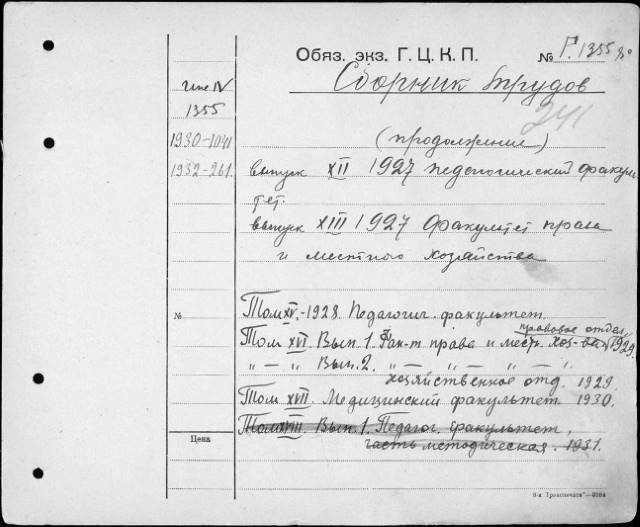 Обяз. экз. Г. Ц. К. П. № Г. 1355
Сборник трудов
IV
1355
241
1930-1041
(продолжение)
1932-261
выпуск XII 1927 педагогический факуль
тет.
выпуск XIII 1927 Факультет права
и местного хозяйства
№
Том XV.-1928. Педагогич. факультет.
правовое отдел.
Том XVI. Вып. 1. Фак-т права и местн. хоз-ва 1929.
" — " Вып. 2. " — " — " — " —
хозяйственное отд. 1929.
Том XVII. Медицинский факультет 1930.
Том XVIII. Вып. 1. Педагог. факультет,
часть методическая. 1931.
Цена